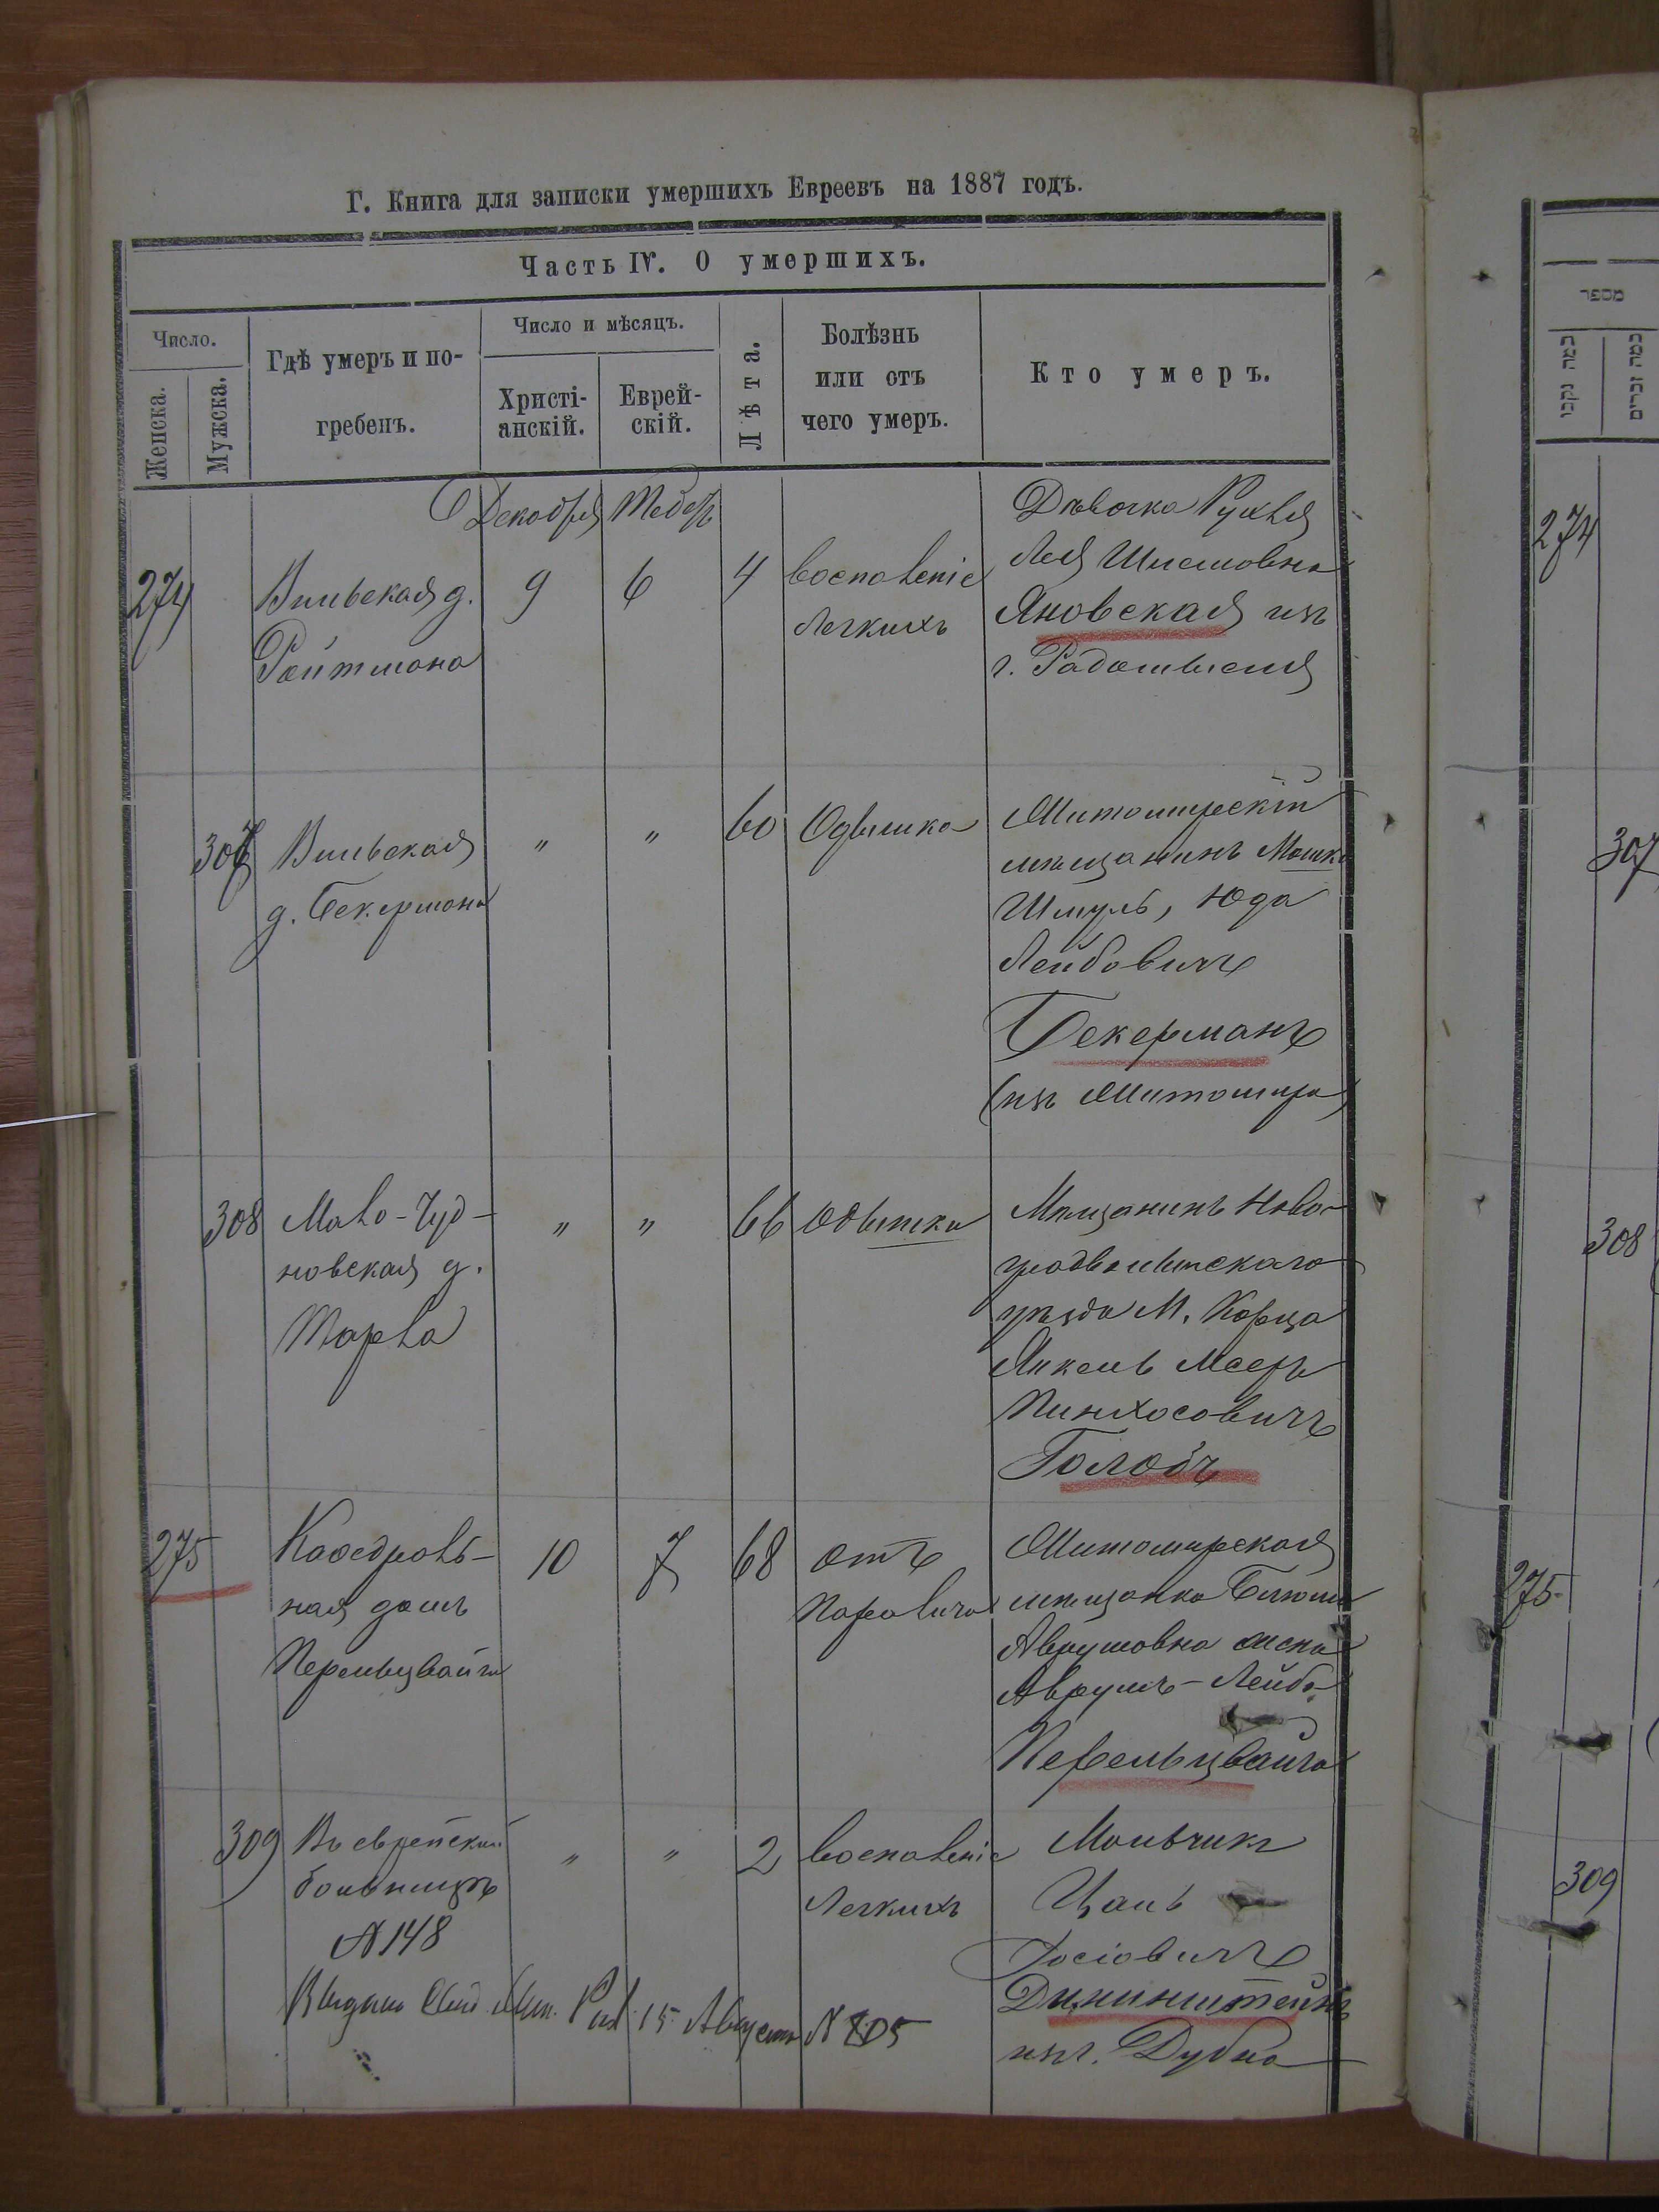 Г. Книга для записки умершихъ Евреевъ на 1887 годъ.
Часть IV. О умершихъ.
Число.
Женска.
Мужска.
Гдѣ умеръ и по-
гребенъ.
Число и мѣсяцъ.
Христі-
анскій.
Еврей-
скій.
Лѣта.
Болѣзнь
или отъ
чего умеръ.
Кто умеръ.
Декабря Тебетъ
274
Вильская д.
Ройтмана
9
6
4
воспаленіе
легкихъ
Дѣвочка Рухля
Лея
Яновская изъ
г. Радомысля
307
Вильская
д. Бекермана
"
"
60
Одышка
Житомирскій
мѣщанинъ Мошко
Шмуль, Юда
Лейбовичъ
Бекерманъ
(изъ Житомира)
308
Мало-Чуд-
новская д.
"
"
66
одышки
Мѣщанинъ Ново-
градволынскаго
уѣзда М. Корца
Янкель Мееръ
Пинхосовичъ
Голобъ
275
Кафедраль-
ная домъ
Перельцвайга
10
7
68
отъ
паралича
Житомирская
мѣщанка
Аврумовна жена
Аврумъ-Лейба
Перельцвайга
309
Въ еврейской
больницѣ
№ 148
"
"
2
воспаленіе
легкихъ
Мальчикъ
Іосіовичъ
Дининштейнъ
изъ г. Дубна
15 Августа №
מספר
כמה נקבו
כמה זכרים
274
307
308
275
309